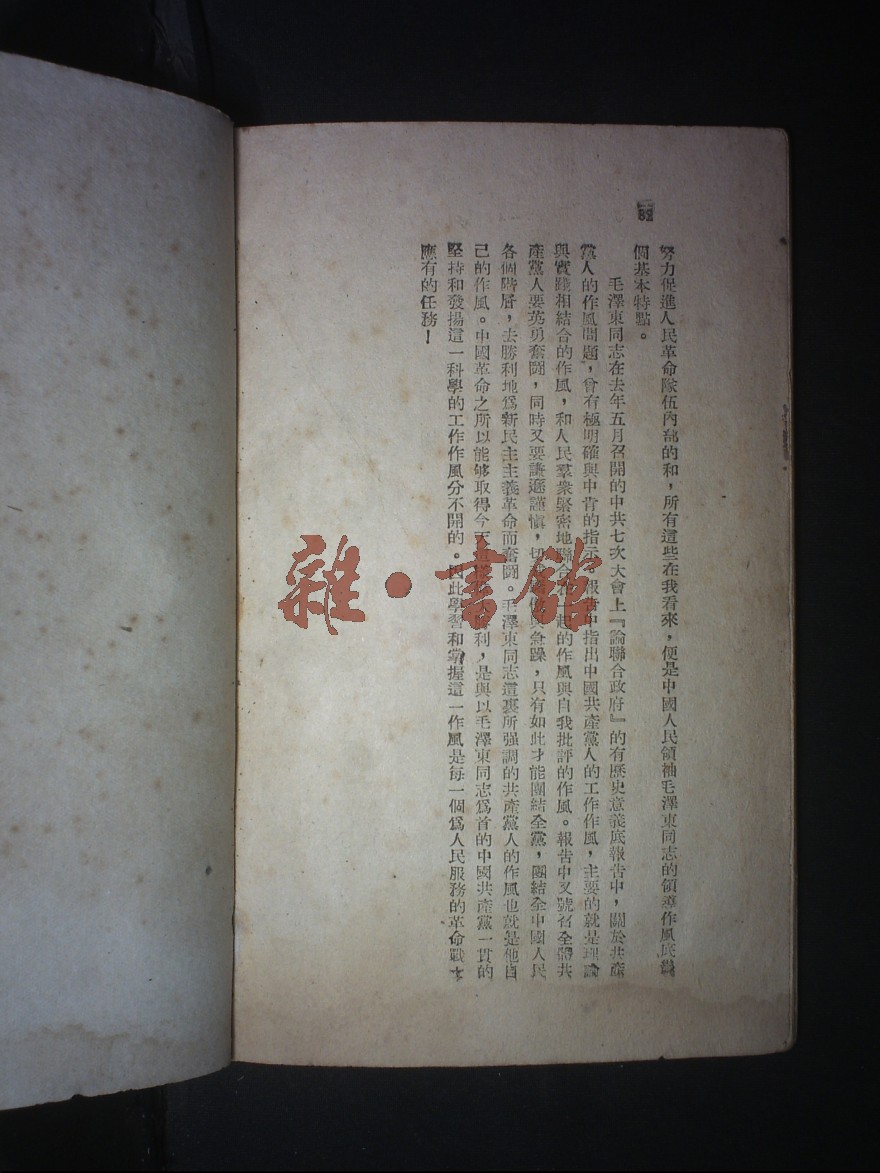 32
努力促進人民革命隊伍內部的和，所有這些在我看來，便是中國人民領袖毛澤東同志的領導作風底幾
個基本特點。
毛澤東同志在去年五月召開的中共七次大會上『論聯合政府』的有歷史意義底報告中，關於共產
黨人的作風問題，曾有極明確與中肯的指示。報告中指出中國共產黨人的工作作風，主要的就是理論
與實踐相結合的作風，和人民羣衆緊密地聯合在一起的作風與自我批評的作風。報告中又號召全體共
產黨人要英勇奮鬪，同時又要謙遜謹愼，切戒驕傲與急躁，只有如此才能團結全黨，團結全中國人民
各個階層，去勝利地爲新民主主義革命而奮鬪。毛澤東同志這裏所强調的共產黨人的作風也就是他自
己的作風。中國革命之所以能够取得今天這樣勝利，是與以毛澤東同志爲首的中國共產黨一貫的
堅持和發揚這一科學的工作作風分不開的。因此學習和掌握這一作風是每一個爲人民服務的革命戰士
應有的任務！
雜·書館